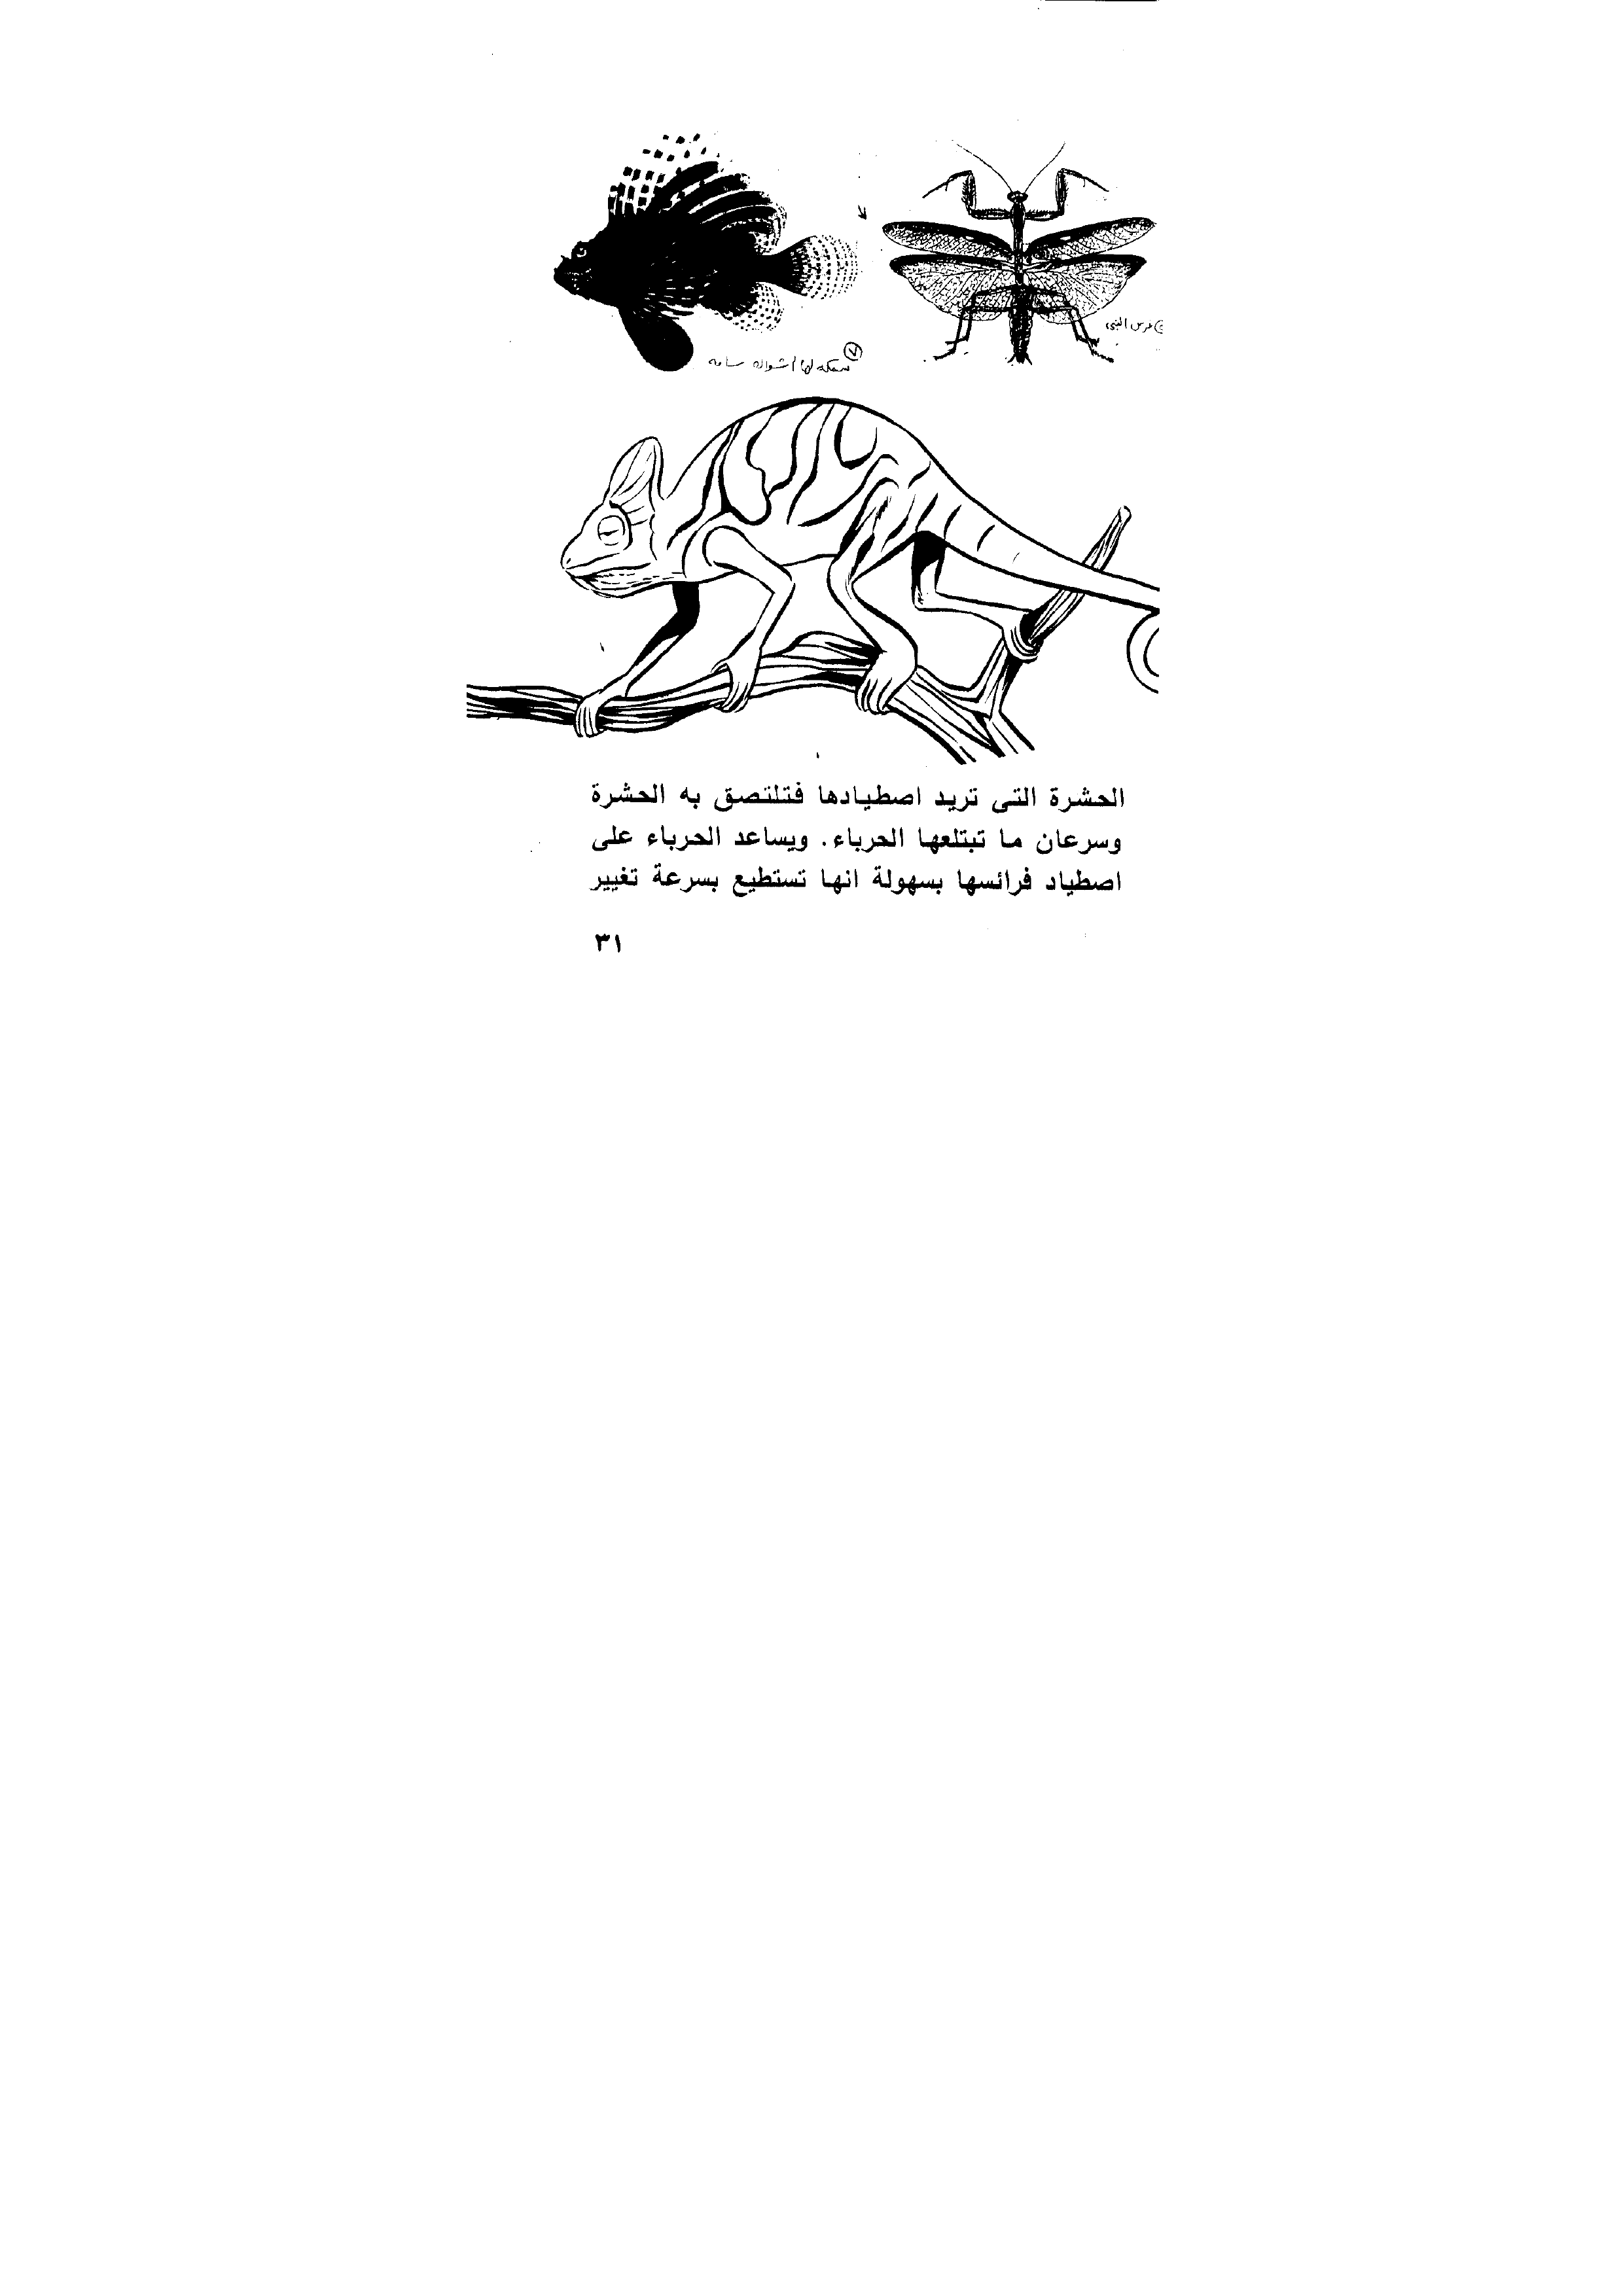 فرس النبى
٧ سمكه لها أشواك سامه
الحشرة التى تريد اصطيادها فتلتصق به الحشرة
وسرعان ما تبتلعها الحرباء. ويساعد الحرباء على
اصطياد فرائسها بسهولة انها تستطيع بسرعة تغيير
٣١